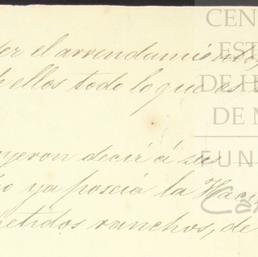 el arrendamiento
de ellos todo lo que es
oyeron decir á su
ya poseía la Haci
etidos ranchos, de
CEN
ES
DE H
DE M
FUN
Car